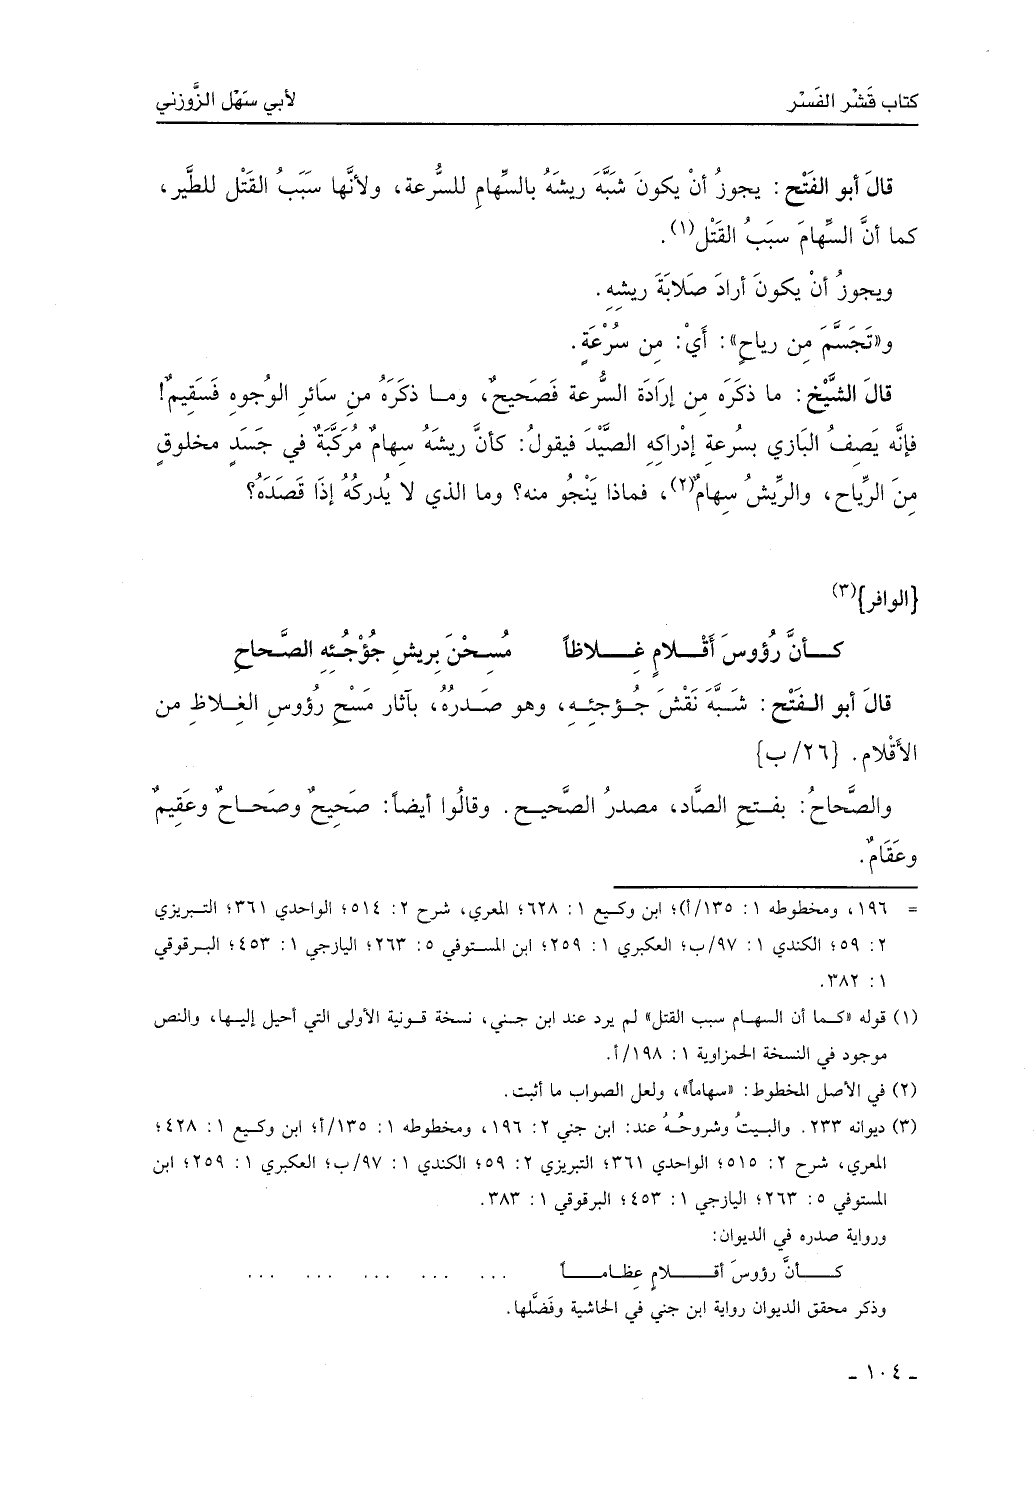 كتاب قَشْر الفَسْر لأبي سَهْل الزَّوزني
قالَ أبو الفَتْح: يجوزُ أنْ يكونَ شَبَّهَ ريشَهُ بالسِّهامِ للسُّرعة، ولأنَّها سَبَبُ القَتْل للطَّير،
كما أنَّ السِّهامَ سبَبُ القَتْل(١).
ويجوزُ أنْ يكونَ أرادَ صَلابَةَ ريشِهِ.
و«تَجَسَّمَ مِن رياحٍ»: أَيْ: مِن سُرْعَةٍ.
قالَ الشَّيْخ: ما ذكَرَه مِن إرَادَة السُّرعة فَصَحيحٌ، وما ذكَرَهُ من سَائرِ الوُجوهِ فَسَقيمٌ!
فإنَّه يَصفُ البَازي بسُرعة إدْراكِهِ الصَّيْدَ فيقولُ: كأنَّ ريشَهُ سِهامٌ مُرَكَّبَةٌ في جَسَدٍ مخلوقٍ
مِنَ الرِّياحِ، والرِّيشُ سِهامٌ(٢)، فماذا يَنْجُو منه؟ وما الذي لا يُدركُهُ إذَا قَصَدَهُ؟
{الوافر}(٣)
كـأنَّ رُؤوسَ أَقْـلامٍ غِـلاظاً مُسِحْنَ بريشِ جُؤْجُئِه الصَّحاحِ
قالَ أبو الـفَتْح: شَبَّهَ نَقْشَ جُـؤجئِـهِ، وهو صَدرُهُ، بآثار مَسْحِ رُؤوسِ الغِـلاظِ من
الأَقْلام. {٢٦/ ب}
والصَّحاحُ: بفـتحِ الصَّاد، مصدرُ الصَّحيـحِ. وقالُوا أيضاً: صَحيحٌ وصَحـاحٌ وعَقِيمٌ
وعَقَامٌ.
= ١٩٦، ومخطوطه ١: ١٣٥/أ)؛ ابن وكيع ١: ٦٢٨؛ المعري، شرح ٢: ٥١٤؛ الواحدي ٣٦١؛ التبريزي
٢: ٥٩؛ الكندي ١: ٩٧/ب؛ العكبري ١: ٢٥٩؛ ابن المستوفي ٥: ٢٦٣؛ اليازجي ١: ٤٥٣؛ البرقوقي
١: ٣٨٢.
(١) قوله «كـما أن السهـام سبب القتل» لم يرد عند ابن جني، نسخة قـونية الأولى التي أحيل إليـها، والنص
موجود في النسخة الحمزاوية ١: ١٩٨/أ.
(٢) في الأصل المخطوط: «سهاماً»، ولعل الصواب ما أثبت.
(٣) ديوانه ٢٣٣. والبيتُ وشروحُـهُ عند: ابن جني ٢: ١٩٦، ومخطوطه ١: ١٣٥/أ؛ ابن وكيع ١: ٤٢٨؛
المعري، شرح ٢: ٥١٥؛ الواحدي ٣٦١؛ التبريزي ٢: ٥٩؛ الكندي ١: ٩٧/ب؛ العكبري ١: ٢٥٩؛ ابن
المستوفي ٥: ٢٦٣؛ اليازجي ١: ٤٥٣؛ البرقوقي ١: ٣٨٣.
ورواية صدره في الديوان:
كـأنَّ رؤوسَ أقـلامٍ عِظـامـاً ... ... ... ... ...
وذكر محقق الديوان رواية ابن جني في الحاشية وفَضَّلها.
ـ ١٠٤ ـ